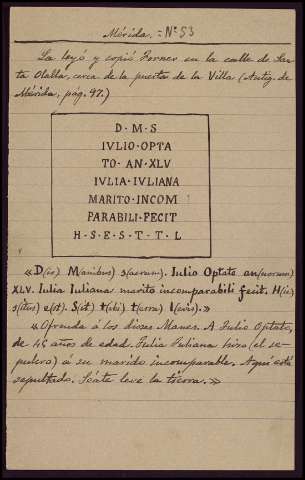 Mérida. = Nº 53
La leyó y copió Forner en la calle de San-
ta Olalla, cerca de la puerta de la Villa (Antig. de
Mérida, pág. 97.)
D · M · S
IVLIO · OPTA
TO · AN · XLV
IVLIA · IVLIANA
MARITO · INCOM
PARABILI · FECIT
H · S · E · S · T · T · L
«D(is) M(anibus) s(acrum). Iulio Optato an(norum)
XLV. Iulia Iuliana marito incomparabili fecit. H(ic)
s(itus) e(st). S(it) t(ibi) t(erra) l(evis).»
«Ofrenda á los dioses Manes. A Julio Optato,
de 45 años de edad. Julia Juliana hizo (el se-
pulcro) á su marido incomparable. Aquí está
sepultado. Séate leve la tierra.»